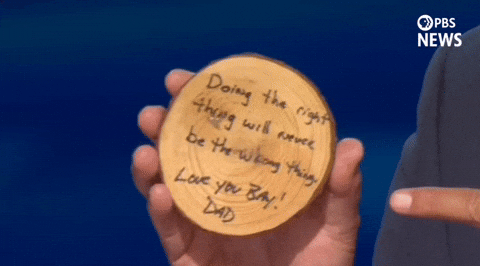 PBS
NEWS
Doing the right
thing will never
be the wrong thing.
Love you Bay!
DAD